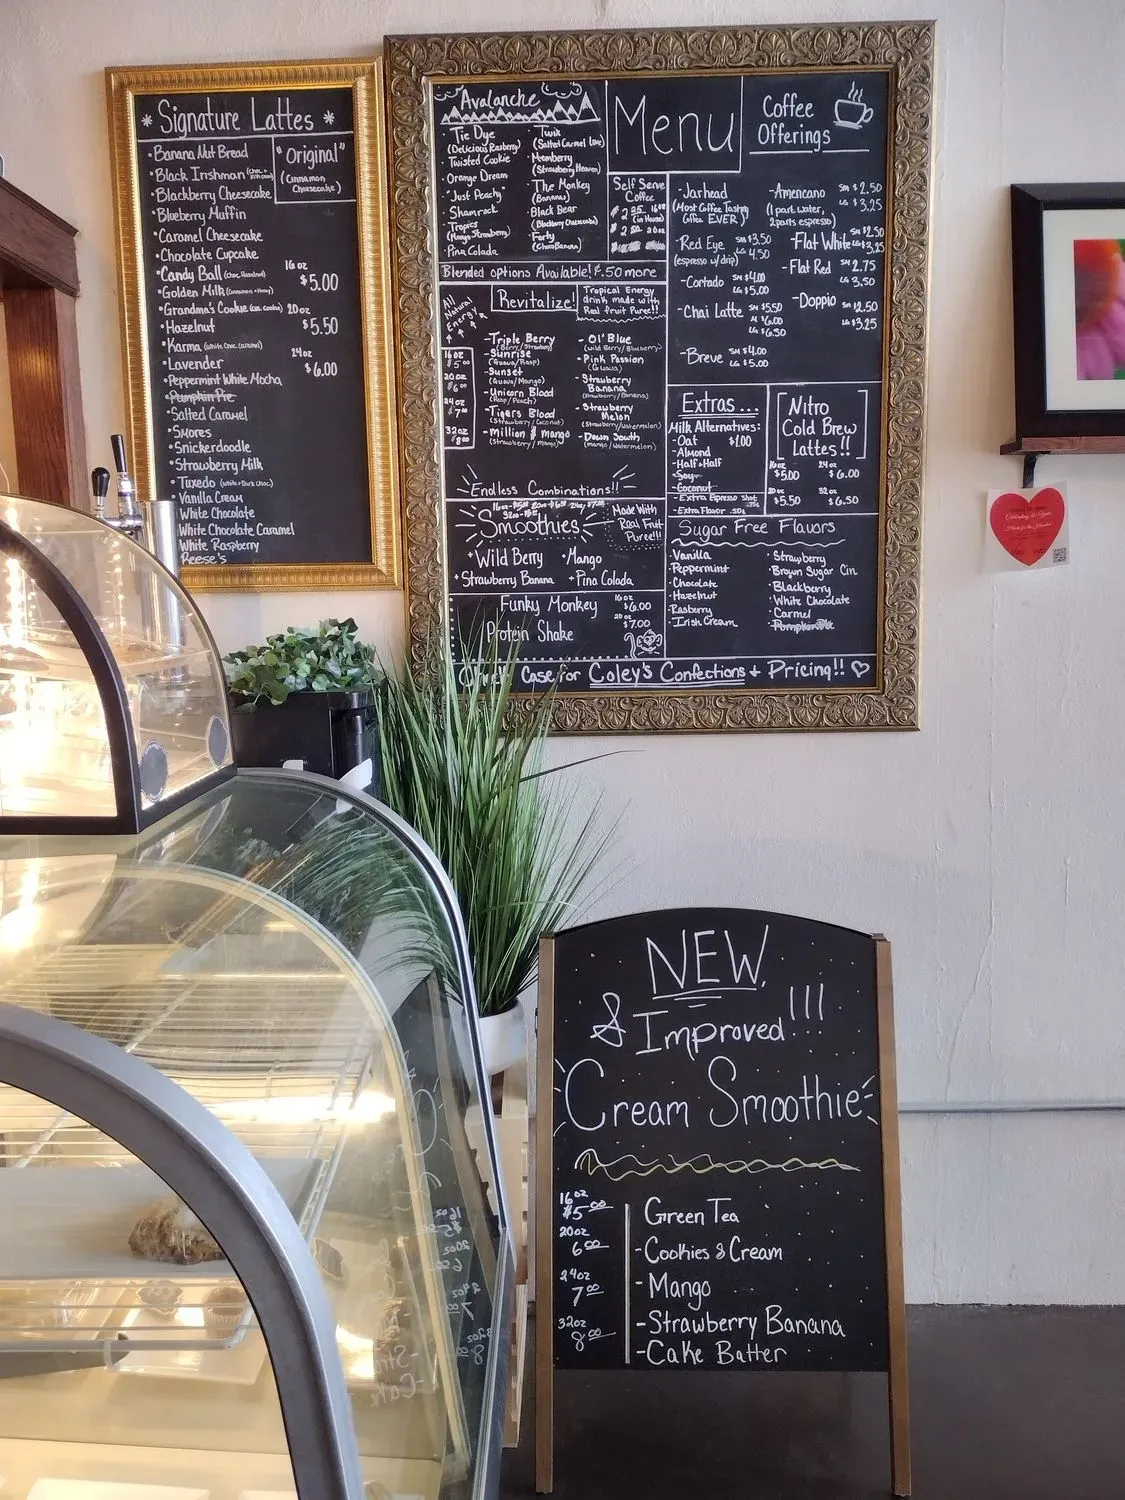 * Signature Lattes *
• Banana Nut Bread
• Black Irishman
• Blackberry Cheesecake
• Blueberry Muffin
• Caramel Cheesecake
• Chocolate Cupcake
• Candy Ball (Choc. Hazelnut)
• Golden Milk (Cinnamon + Honey)
• Grandma's Cookie
• Hazelnut
• Karma (White Choc. Caramel)
• Lavender
• Peppermint White Mocha
• Pumpkin Pie
• Salted Caramel
• Smores
• Snickerdoodle
• Strawberry Milk
• Tuxedo (White + Dark Choc.)
• Vanilla Cream
• White Chocolate
White Chocolate Caramel
White Raspberry
Reese's
"Original"
(Cinnamon
Cheesecake)
16 oz
$5.00
20 oz
$5.50
24 oz
$6.00
Avalanche
• Tie Dye
(Delicious Rasberry)
• Twisted Cookie
• Orange Dream
• "Just Peachy"
• Shamrock
• Tropics
(Mango Strawberry)
• Pina Colada
• Twix
(Salted Carmel Love)
(Strawberry Heaven)
• The Monkey
(Bananas)
• Black Bear
(Blackberry Cheesecake)
• Forty
(Choco Banana)
Blended options Available! $.50 more
All
Natural
Energy!
Revitalize!
Tropical Energy
drink made with
Real Fruit Puree!!
16 oz
$5.00
20 oz
$6.00
24 oz
$7.00
32 oz
$8.00
- Triple Berry
(Berry/Strawberry)
- Sunrise
(Guava/Rasp)
- Sunset
(Guava/Mango)
- Unicorn Blood
(Rasp/Peach)
- Tigers Blood
(Strawberry/Coconut)
- million $ mango
(Strawberry/Mango)
- Ol' Blue
(Wild Berry/Blueberry)
- Pink Passion
(Guava)
- Strawberry
Banana
(Strawberry/Banana)
- Strawberry
Melon
(Strawberry/Watermelon)
- Down South
(Mango/Watermelon)
Endless Combinations!!
Smoothies
Made With
Real Fruit
Puree!!
• Wild Berry • Mango
• Strawberry Banana • Pina Colada
Funky Monkey
Protein Shake
16 oz
$6.00
20 oz
$7.00
Menu
Self Serve
Coffee
$2.25 16 oz
(in House)
$2.50 20 oz
Coffee
Offerings
- Jarhead
(Most Coffee Tasting
Coffee EVER)
- Red Eye SM $3.50
(espresso w/ drip) LG 4.50
- Cortado SM $4.00
LG $5.00
- Chai Latte SM $5.50
M $6.00
LG $6.50
- Breve SM $4.00
LG $5.00
- Americano SM $2.50
LG $3.25
(1 part water,
2 parts espresso)
- Flat White SM $2.50
LG $3.25
- Flat Red SM 2.75
LG 3.50
- Doppio SM $2.50
LG $3.25
Extras...
Milk Alternatives:
- Oat $1.00
- Almond
- Half + Half
- Soy
- Coconut
- Extra Espresso Shot
- Extra Flavor .50¢
Nitro
Cold Brew
Lattes!!
16oz $5.00
24oz $6.00
20oz $5.50
32oz $6.50
Sugar Free Flavors
• Vanilla
• Peppermint
• Chocolate
• Hazelnut
• Rasberry
• Irish Cream
• Strawberry
• Brown Sugar Cin.
• Blackberry
• White Chocolate
• Carmel
• Pumpkin Pie
Case for Coley's Confections + Pricing!! ♡
NEW
& Improved!!!
Cream Smoothie
16oz
$5.00
20oz
6.00
24oz
7.00
32oz
8.00
Green Tea
- Cookies & Cream
- Mango
- Strawberry Banana
- Cake Batter